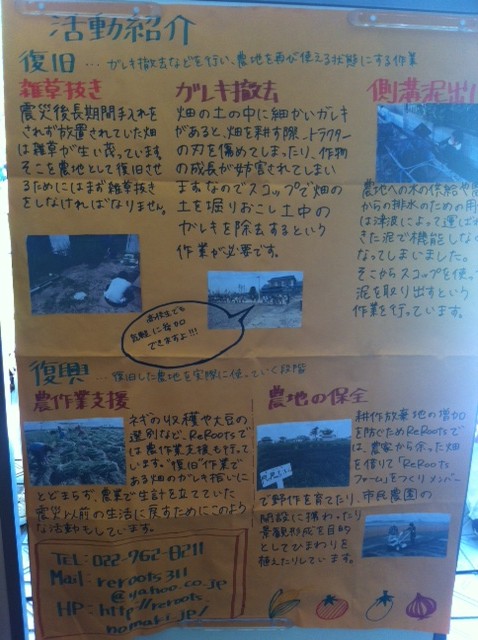 活動紹介
復旧 … ガレキ撤去などを行い、農地を再び使える状態にする作業
雑草抜き
震災後長期間手入れを
されず放置されていた畑
は雑草が生い茂っています。
そこを農地として復旧させ
るためにはまず雑草抜き
をしなければなりません。
ガレキ撤去
畑の土の中に細かいガレキ
があると、畑を耕す際、トラクター
の刃を傷めてしまったり、作物
の成長が妨害されてしまい
ます。なのでスコップで畑の
土を掘りおこし土中の
ガレキを除去するという
作業が必要です。
側溝泥出し
農地への水の供給や
からの排水のための用
は津波によって運ばれ
きた泥で機能しなく
なってしまいました。
そこからスコップを使っ
泥を取り出すという
作業を行っています。
高校生でも
気軽に参加
できますよ!!!
復興 … 復旧した農地を実際に使っていく段階
農作業支援
ネギの収穫や大豆の
選別など、ReRootsで
は農作業支援も行って
います。"復旧"作業で
ある畑のガレキ拾いに
とどまらず、農業で生計を立てていた
震災以前の生活に戻すためにこのよう
な活動もしています。
農地の保全
耕作放棄地の増加
を防ぐためReRootsで
は、農家から余った畑
を借りて「ReRoots
ファーム」をつくりメンバー
で野作を育てたり、市民農園の
開設に携わったり
景観形成を目的
としてひまわりを
植えたりしています。
TEL: 022-962-8211
Mail: reroots311
@yahoo.co.jp
HP: http://reroots.
nomaki.jp/